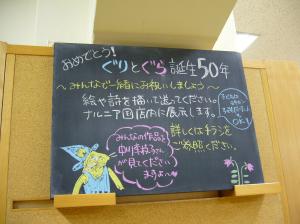 おめでとう!
ぐりとぐら誕生50年
~みんなで一緒にお祝いしましょう~
絵や詩を描いて送ってください。
ナルニア国店内に展示します。
OK!
詳しくはチラシを
ご参照ください。
みんなの作品を
中川李枝子さんが
見てください
ますよ~♥